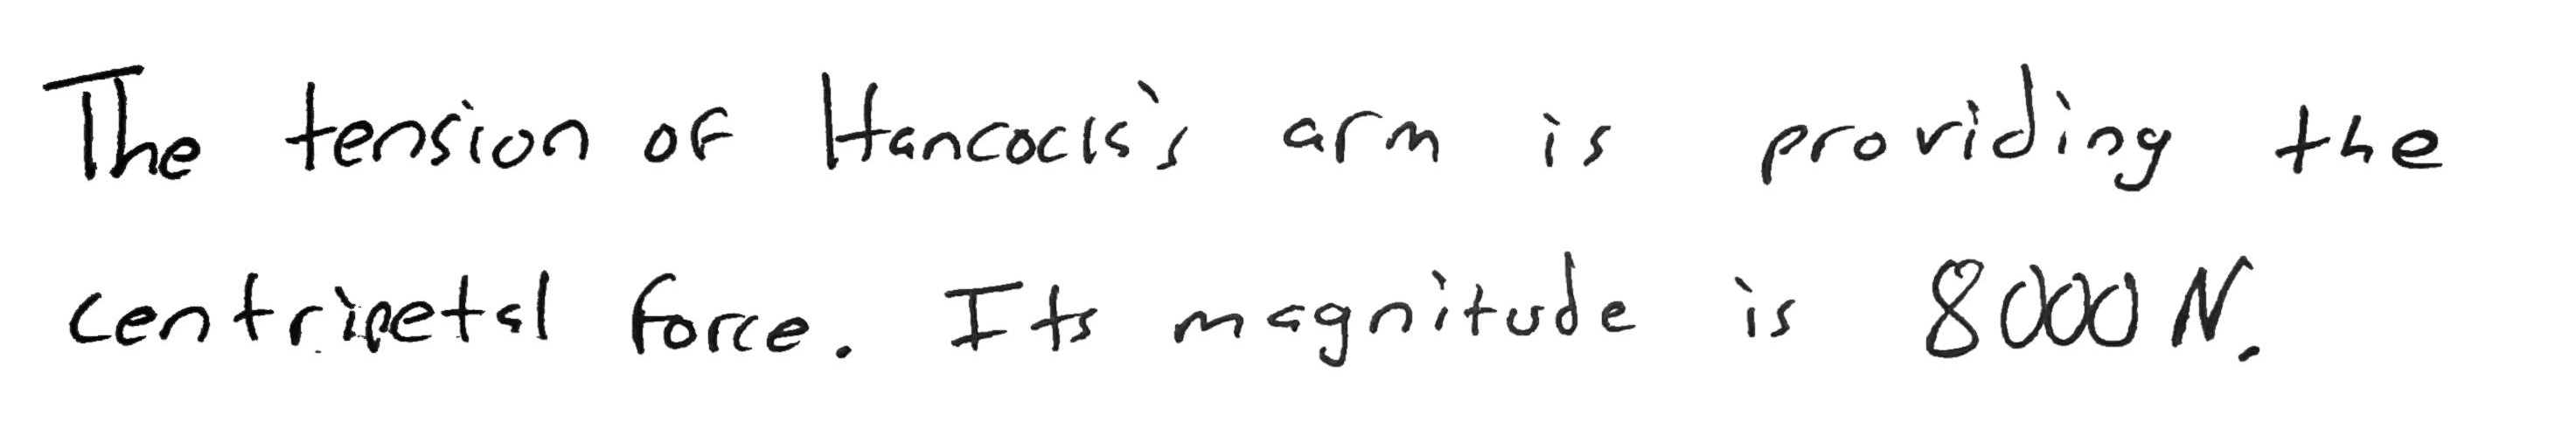 The tension of Hancock's arm is providing the
centripetal force. Its magnitude is 8000 N.